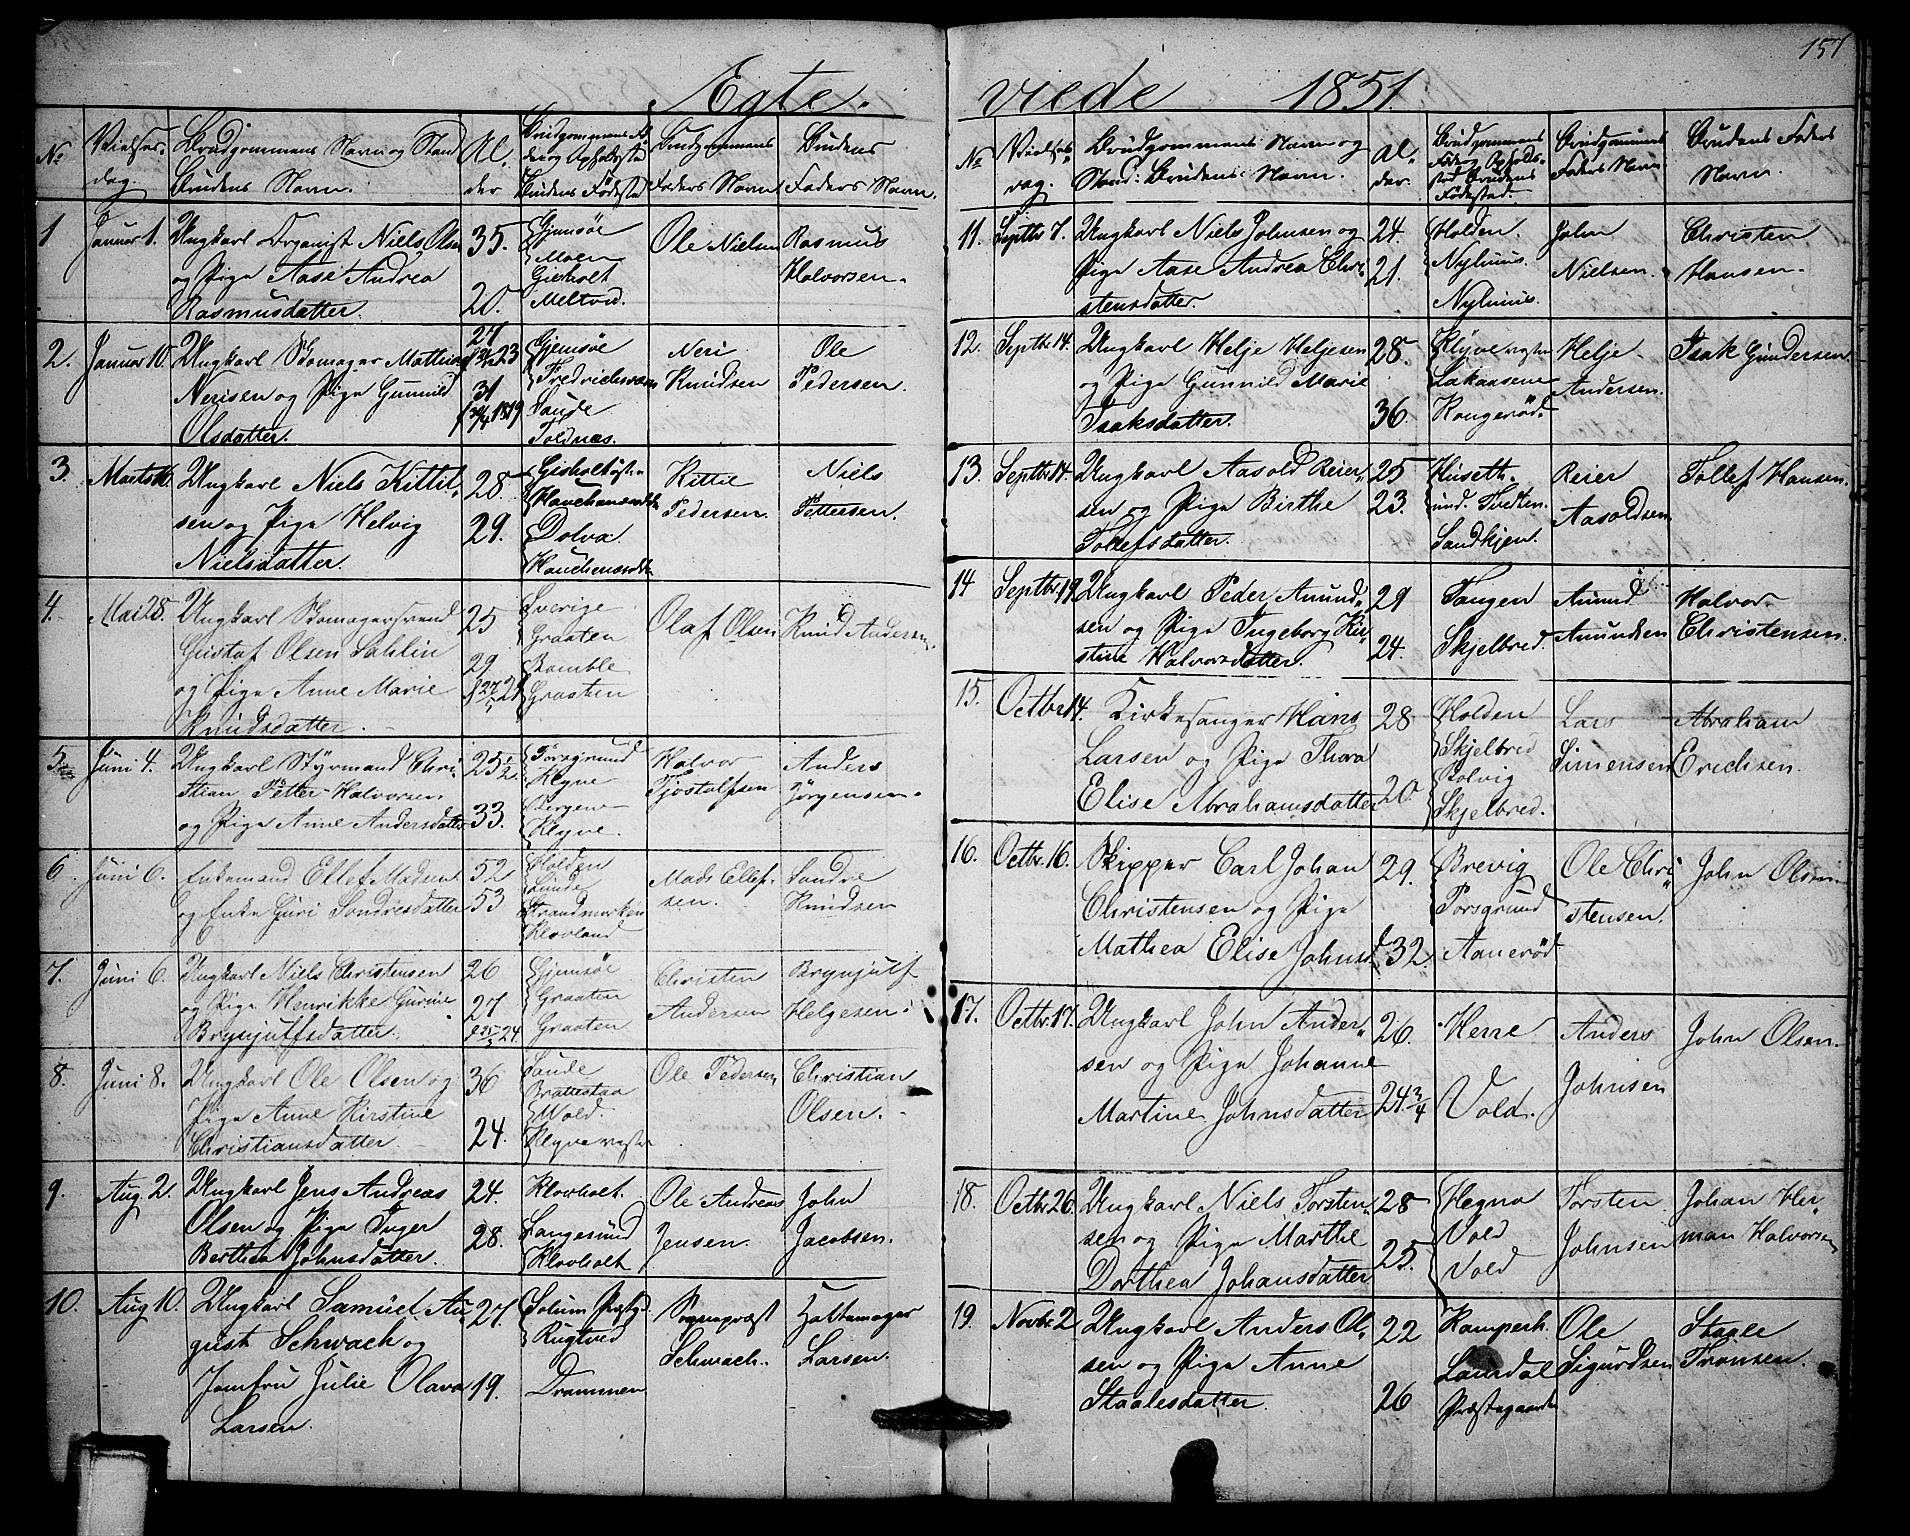 157
Ægte. viede 1851.
No Vielses-dag. Brudgommens Navn og Stand Brudens Navn. Al-der Brudgommens Fø-de og Opholdssted Brudens Fødested Brudgommens Faders Navn Brudens Faders Navn.
1 Januar 1. Ungkarl Organist Niels Olsen
og Pige Aase Andrea
Rasmusdatter.
35.
20.
Gjemsöe
Moen
Gisholt
Meltvd.
Ole Nielsen
Rasmus
Halvorsen.
2. Januar 10. Ungkarl Skomager Mathias
Nerisen og Pige Gunnild
Olsdatter.
27
23
31
1819
Gjemsöe
Fredrichsværn
Saude
Toldnæs.
Neri
Knudsen
Ole
Pedersen.
3. Marts 16. Ungkarl Niels Kittil-
sen og Pige Helvig
Nielsdatter.
28
29.
Dolva.
Kittil
Pedersen.
Niels
Pettersen.
4. Mai 28. Ungkarl Skomagersvend
Gustaf Olsen Sahlin
og Pige Anne Marie
Knudsdatter.
25
29
Sverige
Graaten
Bamble
Graaten
Olaf Olsen
Knud Andersen.
5. Juni 4. Ungkarl Styrmand Chri-
stian Petter Halvorsen
og Pige Anne Andersdatter
25 1/2
33.
Porsgrund
Klyve
Klyve.
Halvor
Tjostolfsen
Anders
Jörgensen.
6. Juni 6. Enkemand Ellef Madsen
og Enke Guri Sondresdatter
52
53
Holden
Lunde
Strandmorken
Klovland
Mads Ellef-
sen.
Sondre
Knudsen
7. Juni 6. Ungkarl Niels Christensen
og Pige Henrikke Gurine
Brynjulfsdatter.
26
27
Gjemsöe
Graaten
Graaten.
Christen
Andersen
Brynjulf
Helgesen.
8. Juni 8. Ungkarl Ole Olsen og
Pige Anne Kirstine
Christiansdatter.
36
24.
Saude
Brattestaa
Wold
Klyve vestre
Ole Pedersen
Christian
Olsen.
9. Aug. 2. Ungkarl Jens Andreas
Olsen og Pige Inger
Berthea Johnsdatter.
24.
28.
Klovholt.
Langesund
Klovholt.
Ole Andreas
Jensen.
John
Jacobsen.
10. Aug 10. Ungkarl Samuel Au-
gust Schwach og
Jomfru Julie Olava
Larsen.
27.
19.
Solum Præstgd.
Rugtved
Drammen
Sogneprest
Schwach.
Larsen.
No Vielses-dag. Brudgommens Navn og Stand. Brudens Navn. Al-der. Brudgommens Føde og Opholds-sted Brudens Fødested. Brudgommens Faders Navn Brudens Faders Navn.
11. Septbr 7. Ungkarl Niels Johnsen og
Pige Aase Andrea Chri-
stensdatter.
24.
21.
Holden.
Nylinus.
Nylinus.
John
Nielsen.
Christen
Hansen.
12. Septbr 14. Ungkarl Helje Heljesen
og Pige Gunnild Marie
Isaksdatter.
28.
36.
Klyve vestre
Lakaasene
Rongerød.
Helje
Andersen.
Isak Gundersen.
13. Septbr 14. Ungkarl Aasold Reier-
sen og Pige Birthe
Tollefsdatter.
25
23.
Huseth.
und. Tvedten.
Sandkjen.
Reier
Aasoldsen
Tollef Hansen.
14 Septbr 19. Ungkarl Peder Amund-
sen og Pige Ingeborg Kir-
stine Halvorsdatter.
29
24.
Tangen
Skjelbred.
Amund
Amundsen
Halvor
Christensen.
15. Octbr 14. Kirkesanger Hans
Larsen og Pige Thora
Elise Abrahamsdatter
28
20.
Holden
Skjelbred
Solvig
Skjelbred.
Lars
Simensen
Abraham
Erichsen.
16. Octbr. 16. Skipper Carl Johan
Christensen og Pige
Mathea Elise Johnsd.
29.
32.
Brevig
Porsgrund
Aanerød
Ole Chri-
stensen.
John Olsen.
17. Octbr. 17. Ungkarl John Ander-
sen og Pige Johanne
Martine Johnsdatter
26.
24 3/4
Herre
Vold.
Anders
Johnsen
John Olsen.
18. Octbr 26. Ungkarl Niels Torsten-
sen og Pige Marthe
Dorthea Johansdatter
28
25.
Hegna
Vold
Vold
Torsten
Johnsen
Johan Her-
man Halvorsen
19. Novbr 2 Ungkarl Anders Ol-
sen og Pige Anne
Staalesdatter.
22
26
Kamperh.
Laurdal
Præstegaarden
Ole
Sigurdsen
Staale
Tronsen.